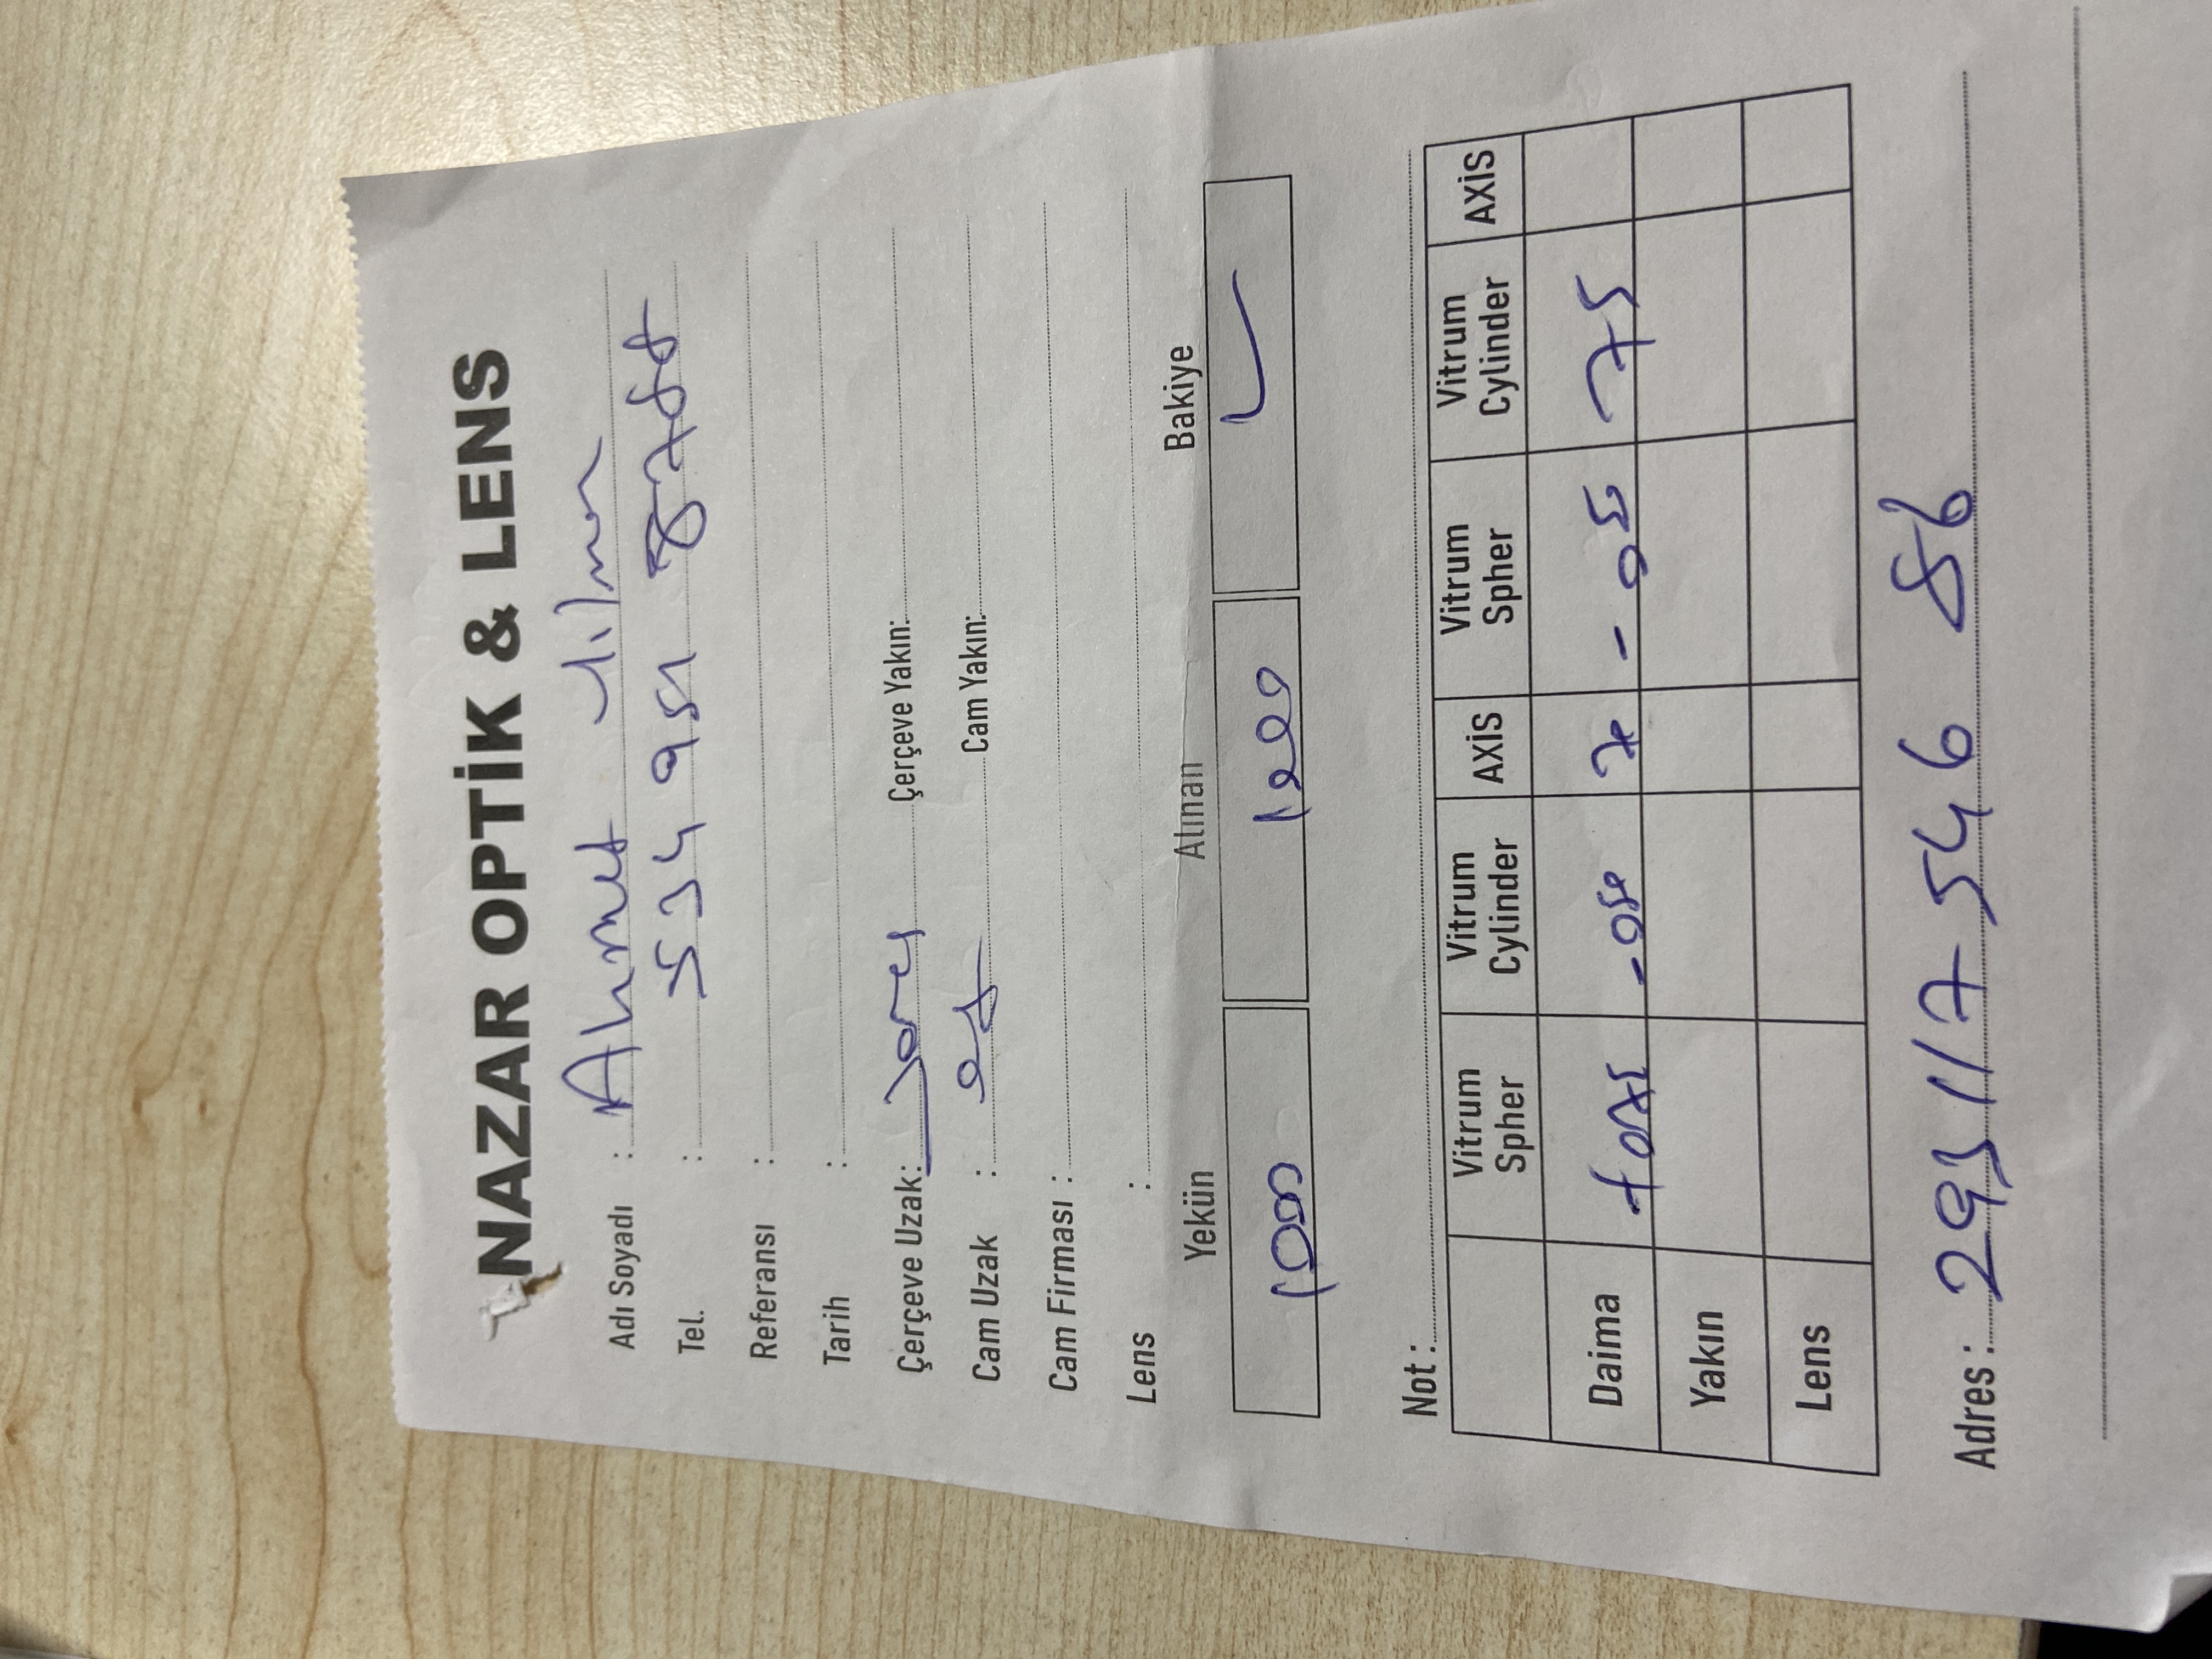 NAZAR OPTİK & LENS
Adı Soyadı : Ahmet Yılmaz
Tel. : 534 951 8788
Referansı :
Tarih :
Çerçeve Uzak: Çerçeve Yakın:
Cam Uzak : Cam Yakın:
Cam Firması :
Lens :
Yekün Alınan Bakiye
1000 1000
Not :
Vitrum Spher Vitrum Cylinder AXİS Vitrum Spher Vitrum Cylinder AXİS
Daima +075 -050 70 - 050 75
Yakın
Lens
Adres : 293117 546 86